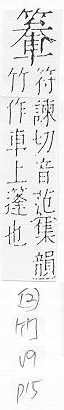 符諫切音范集韻
竹作車上篷也
竹
V9
P15